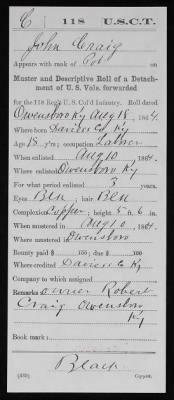 C | 118 | U.S.C.T.
John Craig
Appears with rank of Pvt on
Muster and Descriptive Roll of a Detach-
ment of U. S. Vols. forwarded
for the 118 Reg't U. S. Col'd Infantry. Roll dated
Owensboro Ky Aug 18, 1864.
Where born Daviess Co, Ky
Age 18 y'rs; occupation Laborer
When enlisted Aug 10, 1864.
Where enlisted Owensboro Ky
For what period enlisted 3 years.
Eyes Blk; hair Blk
Complexion Copper; height 5 ft. 6 in.
When mustered in Aug 10, 1864.
Where mustered in Owensboro
Bounty paid $ 100; due $ 100
Where credited Daviess Co Ky
Company to which assigned
Remarks: Owner Robert
Craig Owensboro
Ky
Book mark:
Black
Copyist.